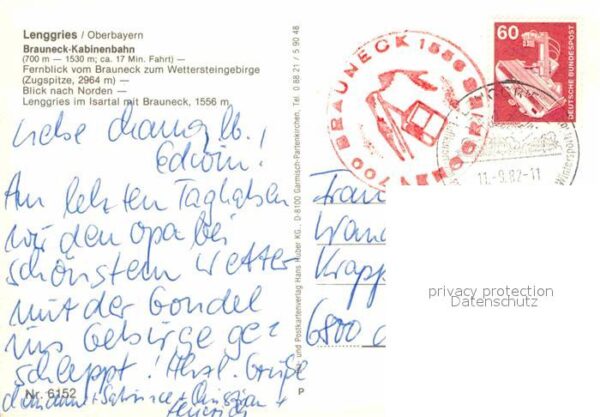 Lenggries / Oberbayern
Brauneck-Kabinenbahn
(700 m — 1530 m; ca. 17 Min. Fahrt) —
Fernblick vom Brauneck zum Wettersteingebirge
(Zugspitze, 2964 m) —
Blick nach Norden —
Lenggries im Isartal mit Brauneck, 1556 m
liebe
Edwin!
Am letzten Tag haben
wir den Opa bei
schönstem Wetter
mit der Gondel
ins Gebirge ge=
schleppt! Herzl. Grüße
Nr. 6152
und Postkartenverlag Hans Huber KG., D-8100 Garmisch-Partenkirchen, Tel. 0 88 21 / 5 90 48
P
BRAUNECK 1556
LENGGRIES
700
60
DEUTSCHE BUNDESPOST
11.-9.82-11
Wintersport
Fran
Krapp
6800
privacy protection
Datenschutz